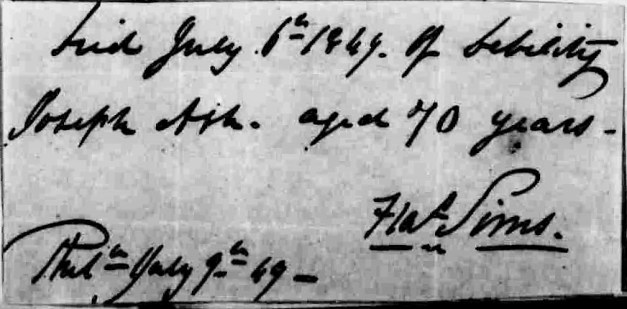 Died July 6th 1849. Of debility
Joseph Ash. aged 70 years -
Sims.
Phila July 9th 49 -